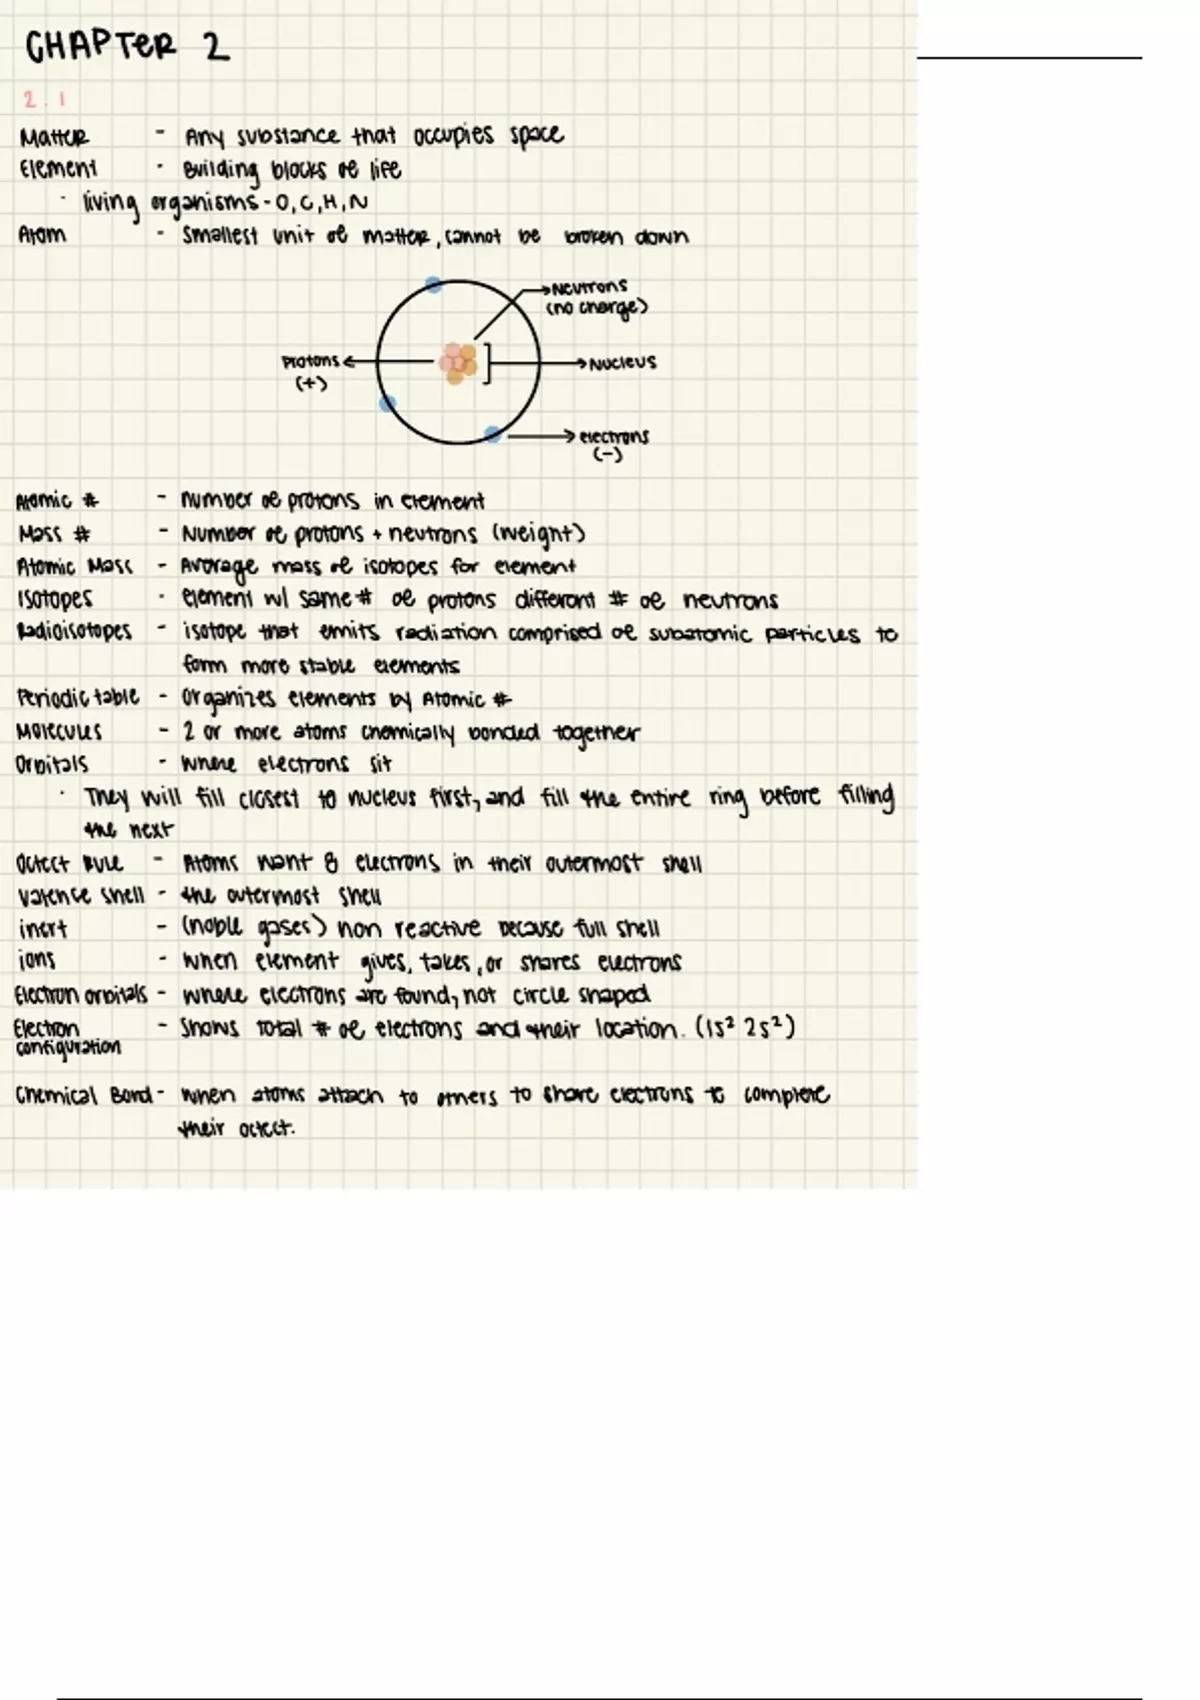 CHAPTER 2
2.1
Matter - Any substance that occupies space
Element - Building blocks of life
· living organisms - O, C, H, N
Atom - Smallest unit of matter, cannot be broken down
Neutrons
(no charge)
Protons
(+)
Nucleus
electrons
(-)
Atomic # - number of protons in element
Mass # - Number of protons + neutrons (weight)
Atomic Mass - Average mass of isotopes for element
Isotopes - element w/ same # of protons different # of neutrons
Radioisotopes - isotope that emits radiation comprised of subatomic particles to
form more stable elements
Periodic table - organizes elements by Atomic #
Molecules - 2 or more atoms chemically bonded together
Orbitals - where electrons sit
· They will fill closest to nucleus first, and fill the entire ring before filling
the next
Octect Rule - Atoms want 8 electrons in their outermost shell
Valence shell - the outermost shell
inert - (noble gases) non reactive because full shell
ions - when element gives, takes, or shares electrons
Electron orbitals - where electrons are found, not circle shaped
Electron - Shows total # of electrons and their location. (1s² 2s²)
configuration
Chemical Bond - when atoms attach to others to share electrons to complete
their octect.